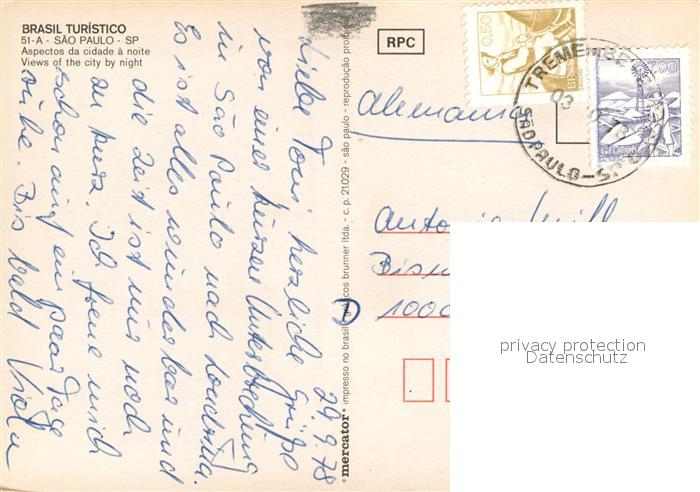 BRASIL TURÍSTICO
51-A - SÃO PAULO - SP
Aspectos da cidade à noite
Views of the city by night
RPC
0,50
7,90
BRASIL
TREMEMBE
SÃO PAULO - SP
Alemania
29.9.78
Liebe Toni, herzliche Grüße
von einer kurzen Unterbrechung
in São Paulo nach
Es ist alles wunderbar und
die Zeit ist nur noch
zu kurz. Ich freue mich
schon auf ein paar Tage
Ruhe. Bis bald
mercator® impresso no brasil gráficos brunner ltda. - c. p. 21.029 - são paulo - reprodução
1000
privacy protection
Datenschutz